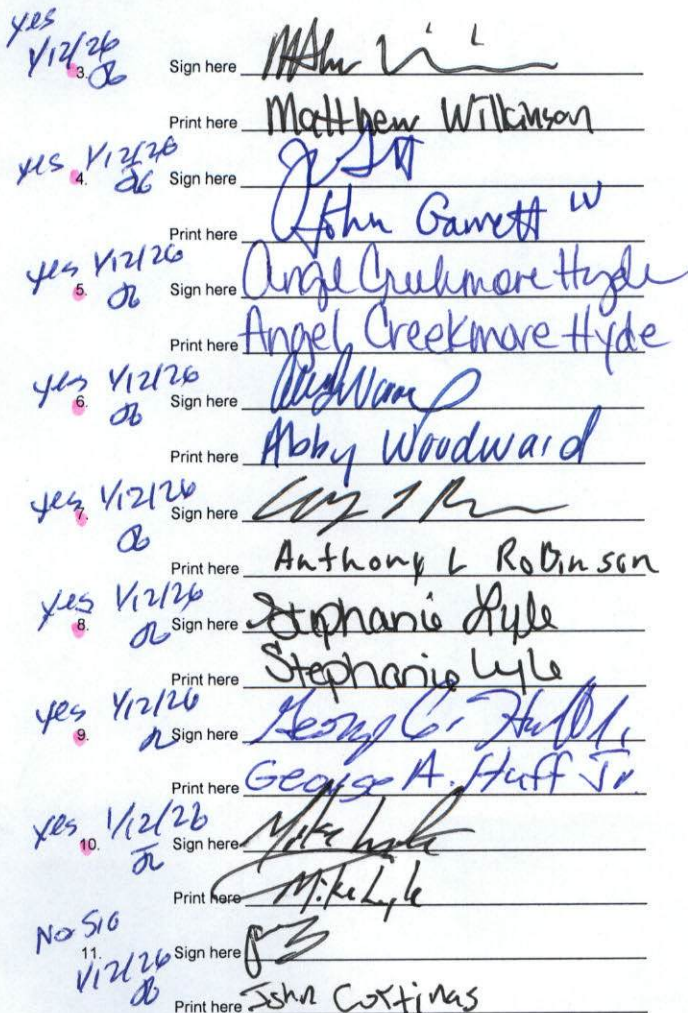 yes
1/12/26
3. Sign here
Print here Matthew Wilkinson
yes 1/12/26
4. Sign here
Print here John Garrett IV
yes 1/12/26
5. Sign here Angel Creekmore Hyde
Print here Angel Creekmore Hyde
yes 1/12/26
6. Sign here
Print here Abby Woodward
yes 1/12/26
7. Sign here
Print here Anthony L Robinson
yes 1/12/26
8. Sign here Stephanie Lyle
Print here Stephanie Lyle
yes 1/12/26
9. Sign here
Print here George A. Huff Jr.
yes 1/12/26
10. Sign here Mike Lyle
Print here Mike Lyle
No SIG
11. Sign here
1/12/26
Print here John Cortinas